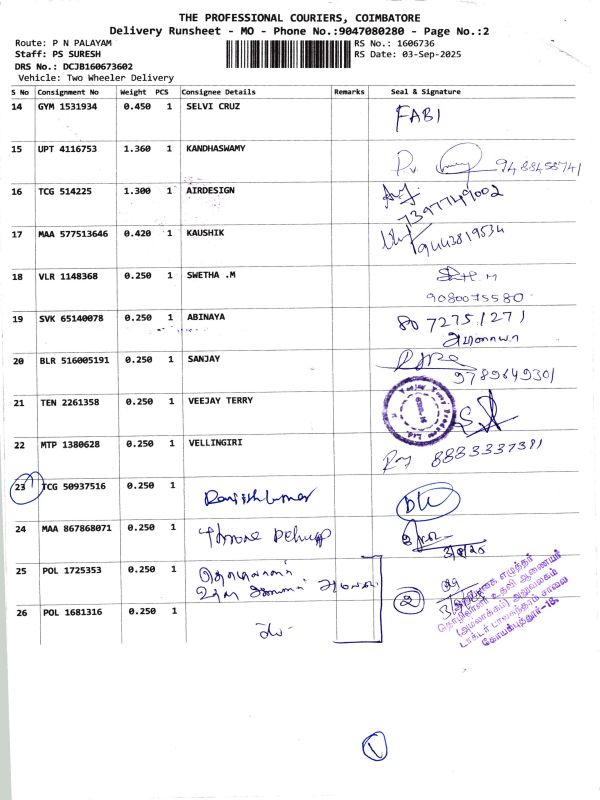 THE PROFESSIONAL COURIERS, COIMBATORE
Delivery Runsheet - MO - Phone No.:9047080280 - Page No.:2
Route: P N PALAYAM
Staff: PS SURESH
DRS No.: DCJB160673602
Vehicle: Two Wheeler Delivery
RS No.: 1606736
RS Date: 03-Sep-2025
S No Consignment No Weight PCS Consignee Details Remarks Seal & Signature
14 GYM 1531934 0.450 1 SELVI CRUZ FABI
15 UPT 4116753 1.360 1 KANDHASWAMY 9488458741
16 TCG 514225 1.300 1 AIRDESIGN 7397749002
17 MAA 577513646 0.420 1 KAUSHIK 9443819534
18 VLR 1148368 0.250 1 SWETHA .M
9080075580
19 SVK 65140078 0.250 1 ABINAYA 80 7275 1271
அபிநயா
20 BLR 516005191 0.250 1 SANJAY
9789649301
21 TEN 2261358 0.250 1 VEEJAY TERRY
22 MTP 1380628 0.250 1 VELLINGIRI 8883337381
23 TCG 50937516 0.250 1
24 MAA 867868071 0.250 1
25 POL 1725353 0.250 1
26 POL 1681316 0.250 1
2
கோயம்புத்தூர்-18.
1